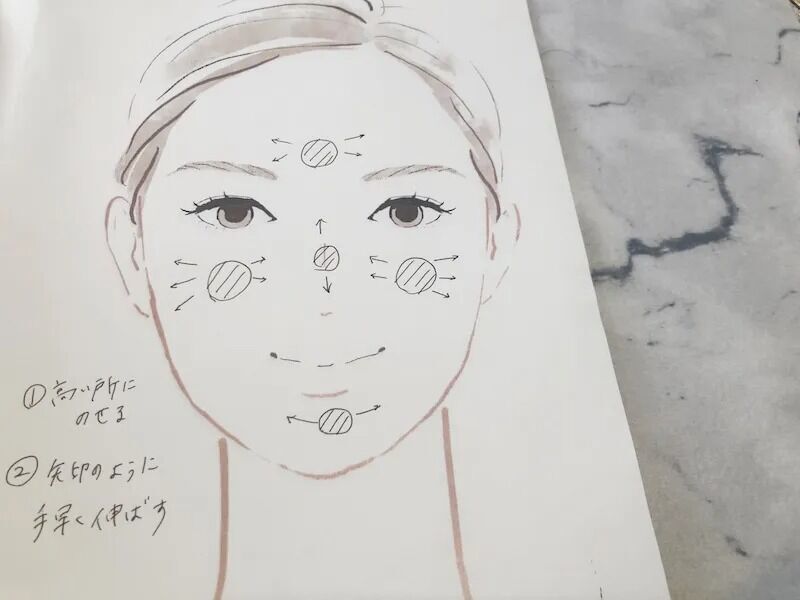 ① 高い所に
のせる
② 矢印のように
手早く伸ばす